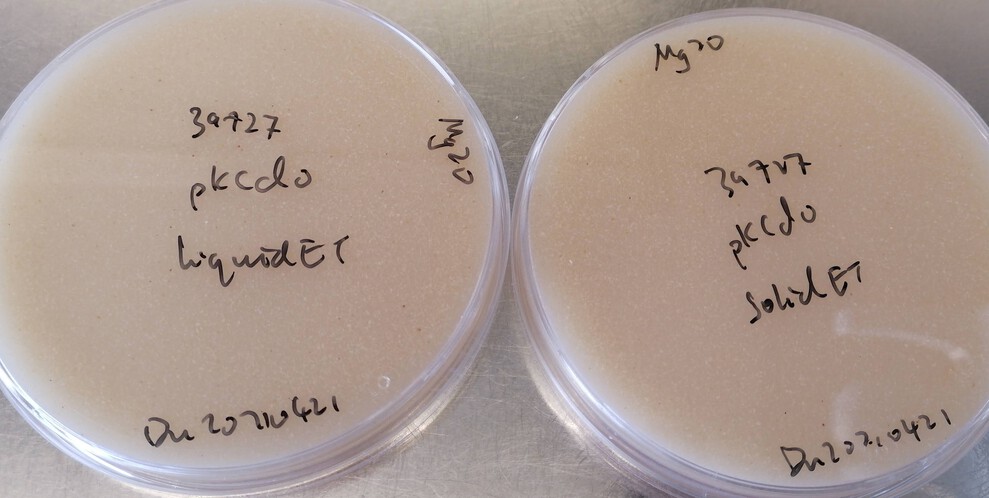 Mg20
39727
pkcdo
liquid ET
Du 20210421
Mg20
39727
pkcdo
Solid ET
Du 20210421